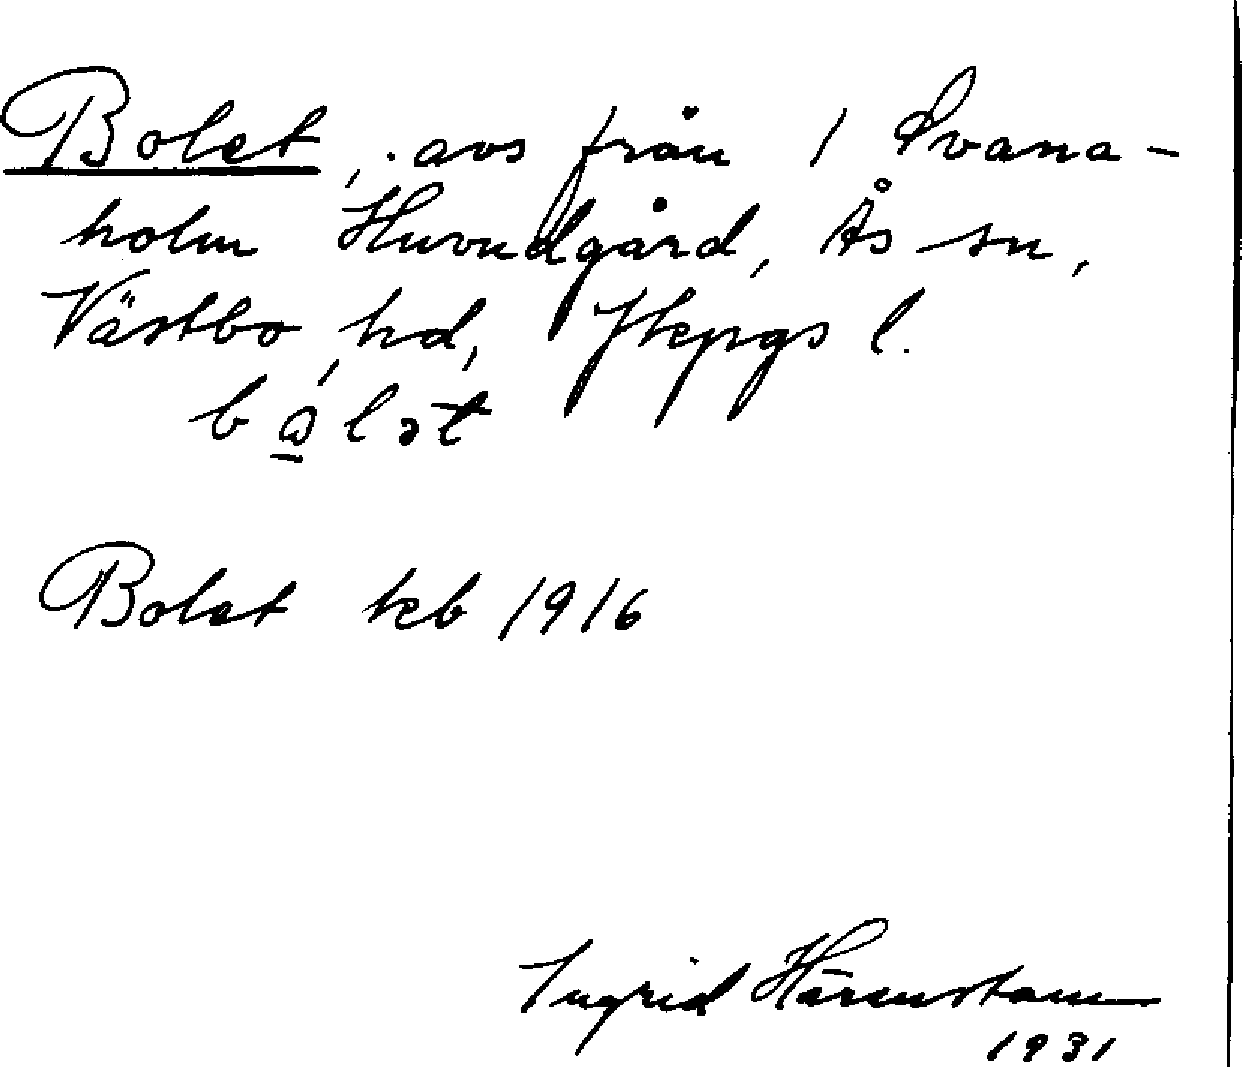 Bolet, avs från 1 Svana-
holm Huvudgård, Ås sn,
Västbo hd, Jkpgs l.
bωlət
Bolet kb 1916
Ingrid Härenstam
1931